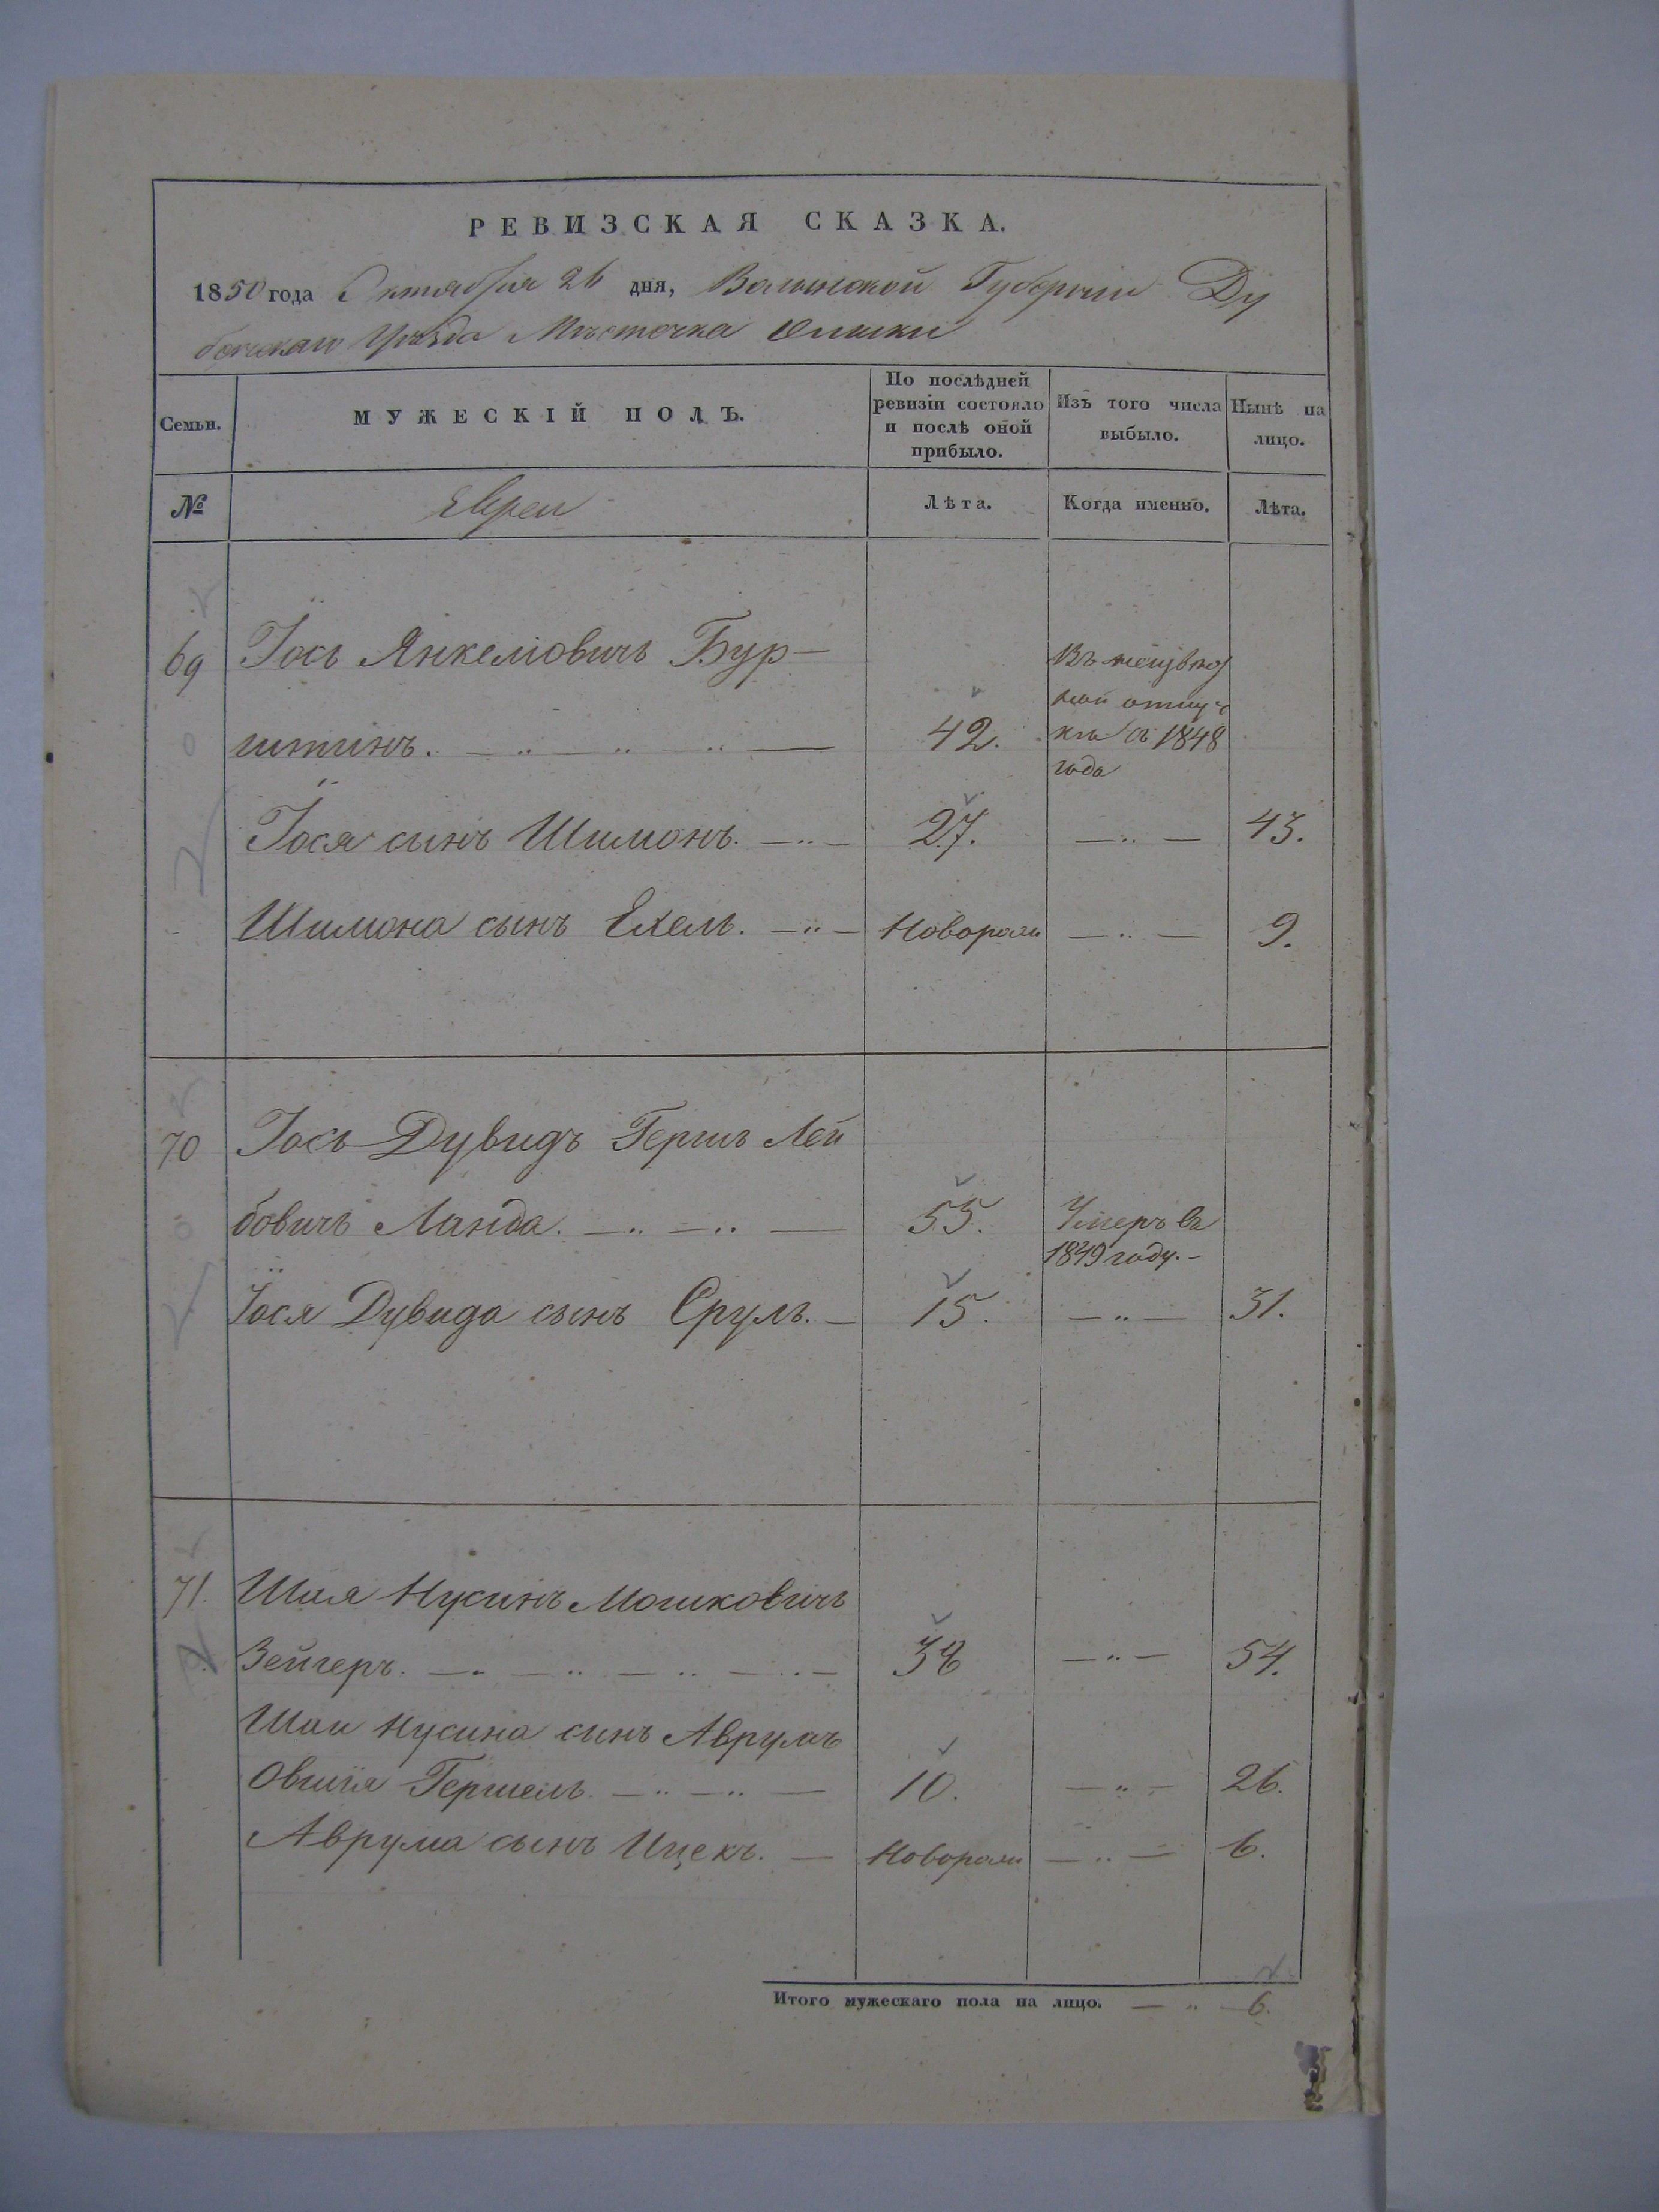 РЕВИЗСКАЯ СКАЗКА.
1850 года Октября 26 дня, Волынской Губернии Ду
бенскаго Уѣзда Мѣстечка Олыки
Семьи.
МУЖЕСКІЙ ПОЛЪ.
По послѣдней ревизіи состояло и послѣ оной прибыло.
Изъ того числа выбыло.
Нынѣ на лицо.
№ Евреи Лѣта. Когда именно. Лѣта.
69 Іось Янкеліовичъ Бур-
штинъ. 42. отлуч
кѣ съ 1848
года
Іося сынъ Шимонъ. 27. 43.
Шимона сынъ Ехель. Новорож 9.
70 Іось Дувидъ Гершъ Лей
бовичъ Ланда. 55. Умеръ въ
1849 году.
Іося Дувида сынъ Сруль. 15. 31.
71. Шая Нусинъ Мошковичъ
Зейгеръ. 38 54.
Шаи Нусина сынъ Аврумъ
Овшія Гершель. 10. 26.
Аврума сынъ Ицекъ. Новорож 6.
Итого мужескаго пола на лицо. 6.